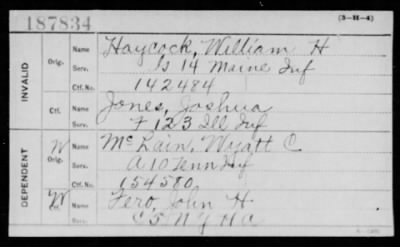 187834
(3-H-4)
INVALID
Orig.
Name Haycock, William H
Serv. G 14 Maine Inf
Ctf. No. 142484
Ctf.
Name Jones, Joshua
Serv. F 123 Ill Inf
DEPENDENT
W Orig.
Name McLain, Wyatt C
Serv. A 10 Tenn Inf
Ctf. No. 154580
W Ctf.
Name Fero, John H
Serv. C 5 N Y H A